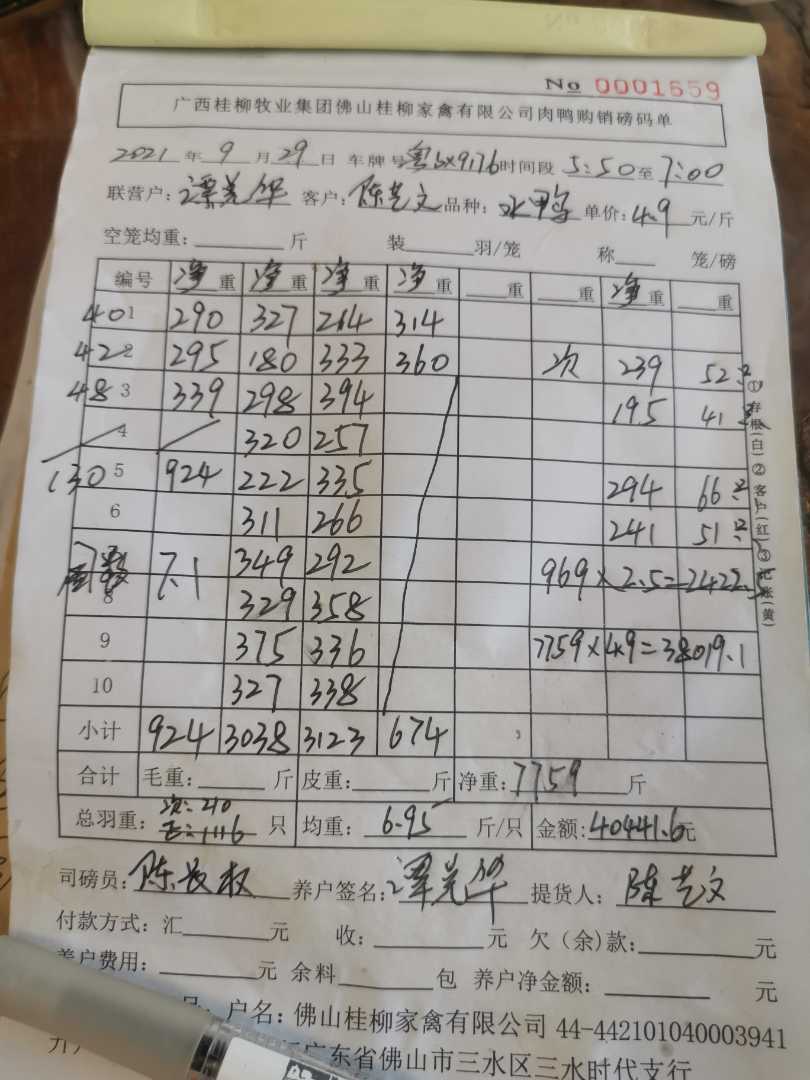 No 0001659
广西桂柳牧业集团佛山桂柳家禽有限公司肉鸭购销磅码单
2021年 9月 29日 车牌号 时间段 5:50至7:00
联营户: 谭美华 客户: 陈艺文 品种: 水鸭 单价: 4.9 元/斤
空笼均重: 斤 装 羽/笼 称 笼/磅
编号 净重 净重 净重 净重 重 重 净重 重
40 1 290 327 264 314
42 2 295 180 333 360 次 239 52只
48 3 339 298 394 195 41只
4 320 257
130 5 924 222 335 294 66只
6 311 266 241 51只
7.1 349 292 969×2.5=2422.5
8 329 358
9 375 336 7759×4.9=38019.1
10 327 338
小计 924 3038 3123 674
合计 毛重: 斤 皮重: 斤 净重: 7759 斤
总羽重: 次: 210 正: 1116 只 均重: 6.95 斤/只 金额: 40441.6元
司磅员: 陈 权 养户签名: 谭美华 提货人: 陈艺文
付款方式: 汇 元 收: 元 欠(余)款: 元
养户费用: 元 余料 包 养户净金额: 元
户名: 佛山桂柳家禽有限公司 44-442101040003941
广东省佛山市三水区三水时代支行
①存根(白)②客户(红)③记账(黄)